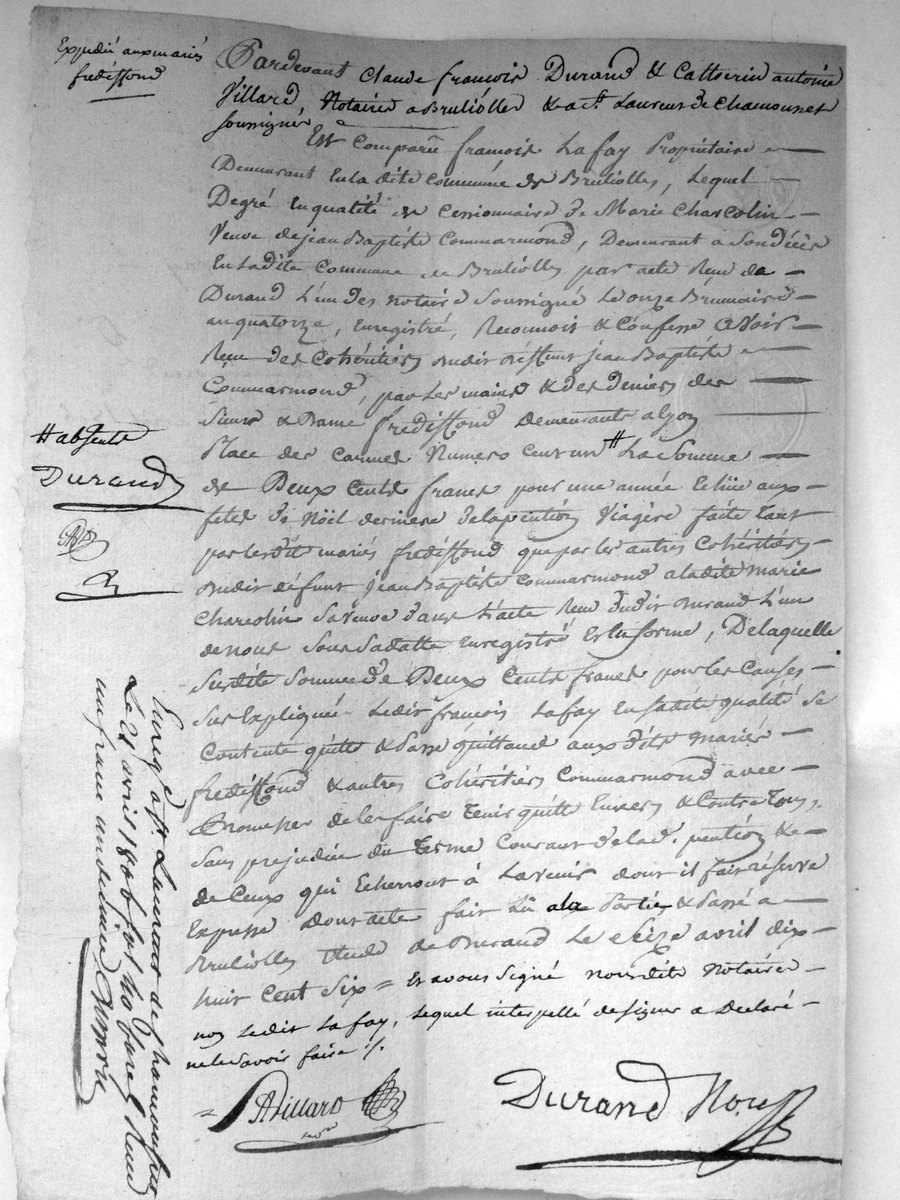 Expedié aux mariés
fredissond
Pardevant Claude françois Durand & Catherin antoine
Villard, Notaires a Bruliolles & a St Laurent de Chamousset
soussignés
Est Comparû françois Lafay Propriétaire
Demeurant En la dite Commune de Bruliolles, Lequel
Degré En qualité de Cessionnaire de Marie Charcolin
Veuve de jean Baptiste Commarmond, Demeurant a
En Ladite Commune de Bruliolles par acte Recu de
Durand L'un des notaire Soussigné Le onze Brumaire
an quatorze, Enregistré, Reconnois & Confesse avoir
Recu des Cohéritiers dudit défunt jean Baptiste
Commarmond, par Les mains & des deniers des
Sieur & Dame fredissond Demeurants a Lyon
Place des Carmes Numero Cent un # La Somme
# absents
Durand
de Deux Cents francs pour une année Echüe aux
fetes de Noël derniere de la pention Viagère faite tant
par lesdit mariés fredissond que par les autres Cohéritiers
dudit défunt jean Baptiste Commarmond a ladite Marie
Charcolin Sa veuve dans L'acte Recu dudit Durand L'un
de nous Sous Sa datte Enregistré En forme, De laquelle
Susdite Somme de Deux Cents francs pour les Causes
Sus Expliquée Ledit françois Lafay En sadite qualité Se
Contente quitte & Passe quittance aux dits mariés
fredissond & autres Cohéritiers Commarmond avec
Promesse de les faire Tenir quitte Envers & Contre Tous,
Sans prejudice du Terme Courant de lad. pention &
de Ceux qui Echerront à Lavenir dont il fait réserve
Expresse dont acte fait Lû a la Partie & Passé a
Bruliolles Etude de Durand Le Seize avril dix
huit Cent Six = Et avons Signé nousdits Notaires
non Ledit Lafay, Lequel interpellé de signer a Declaré
ne le Savoir faire ./.
Enreg. a St. Laurent de Chamousset
Le 21 avril 1806 fol. Recu
un franc
= Villard
Durand Nore